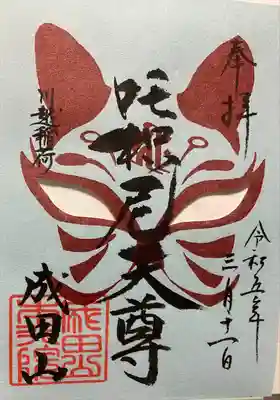 奉拝
令和五年
三月十一日
吒枳尼天尊
川越稲荷
成田山